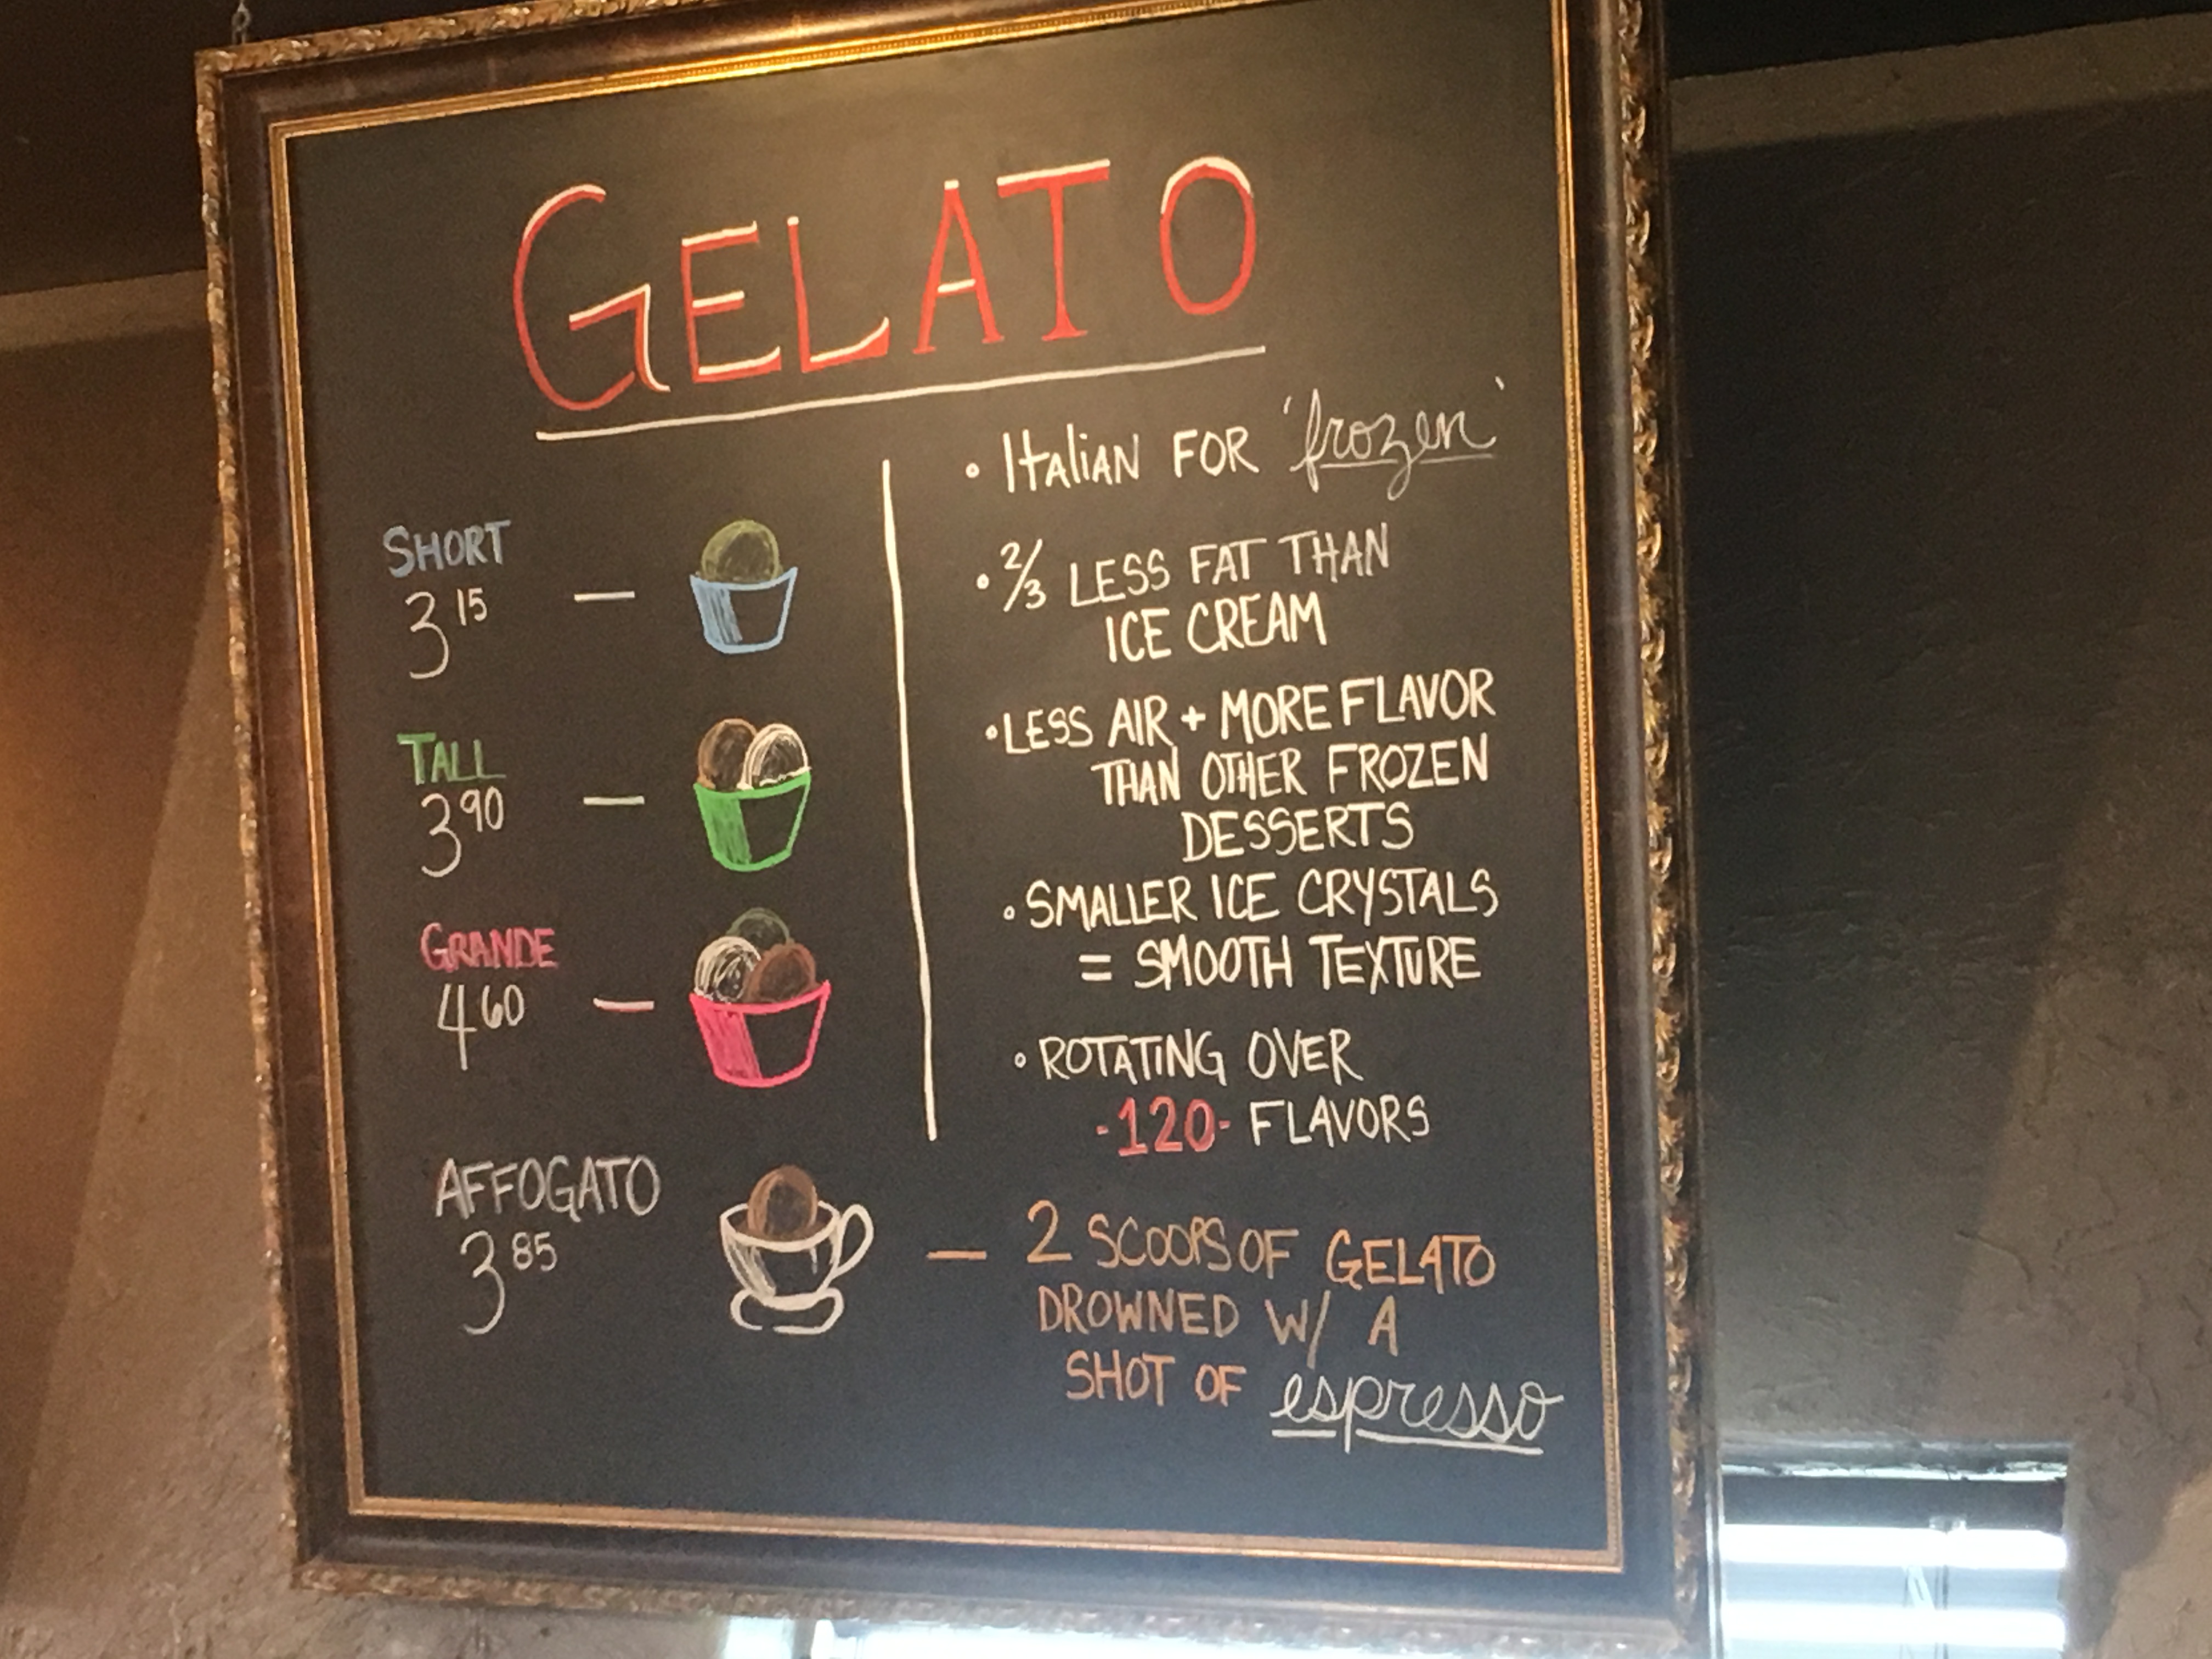 GELATO
SHORT
3 15
TALL
3 90
GRANDE
4 60
• ItaliAN FOR 'frozen'
• 2/3 LESS FAT THAN
ICE CREAM
• LESS AIR + MORE FLAVOR
THAN OTHER FROZEN
DESSERTS
• SMALLER ICE CRYSTALS
= SMOOTH TEXTURE
• ROTATING OVER
-120- FLAVORS
AFFOGATO
3 85
— 2 SCOOPS OF GELATO
DROWNED W/ A
SHOT OF espresso